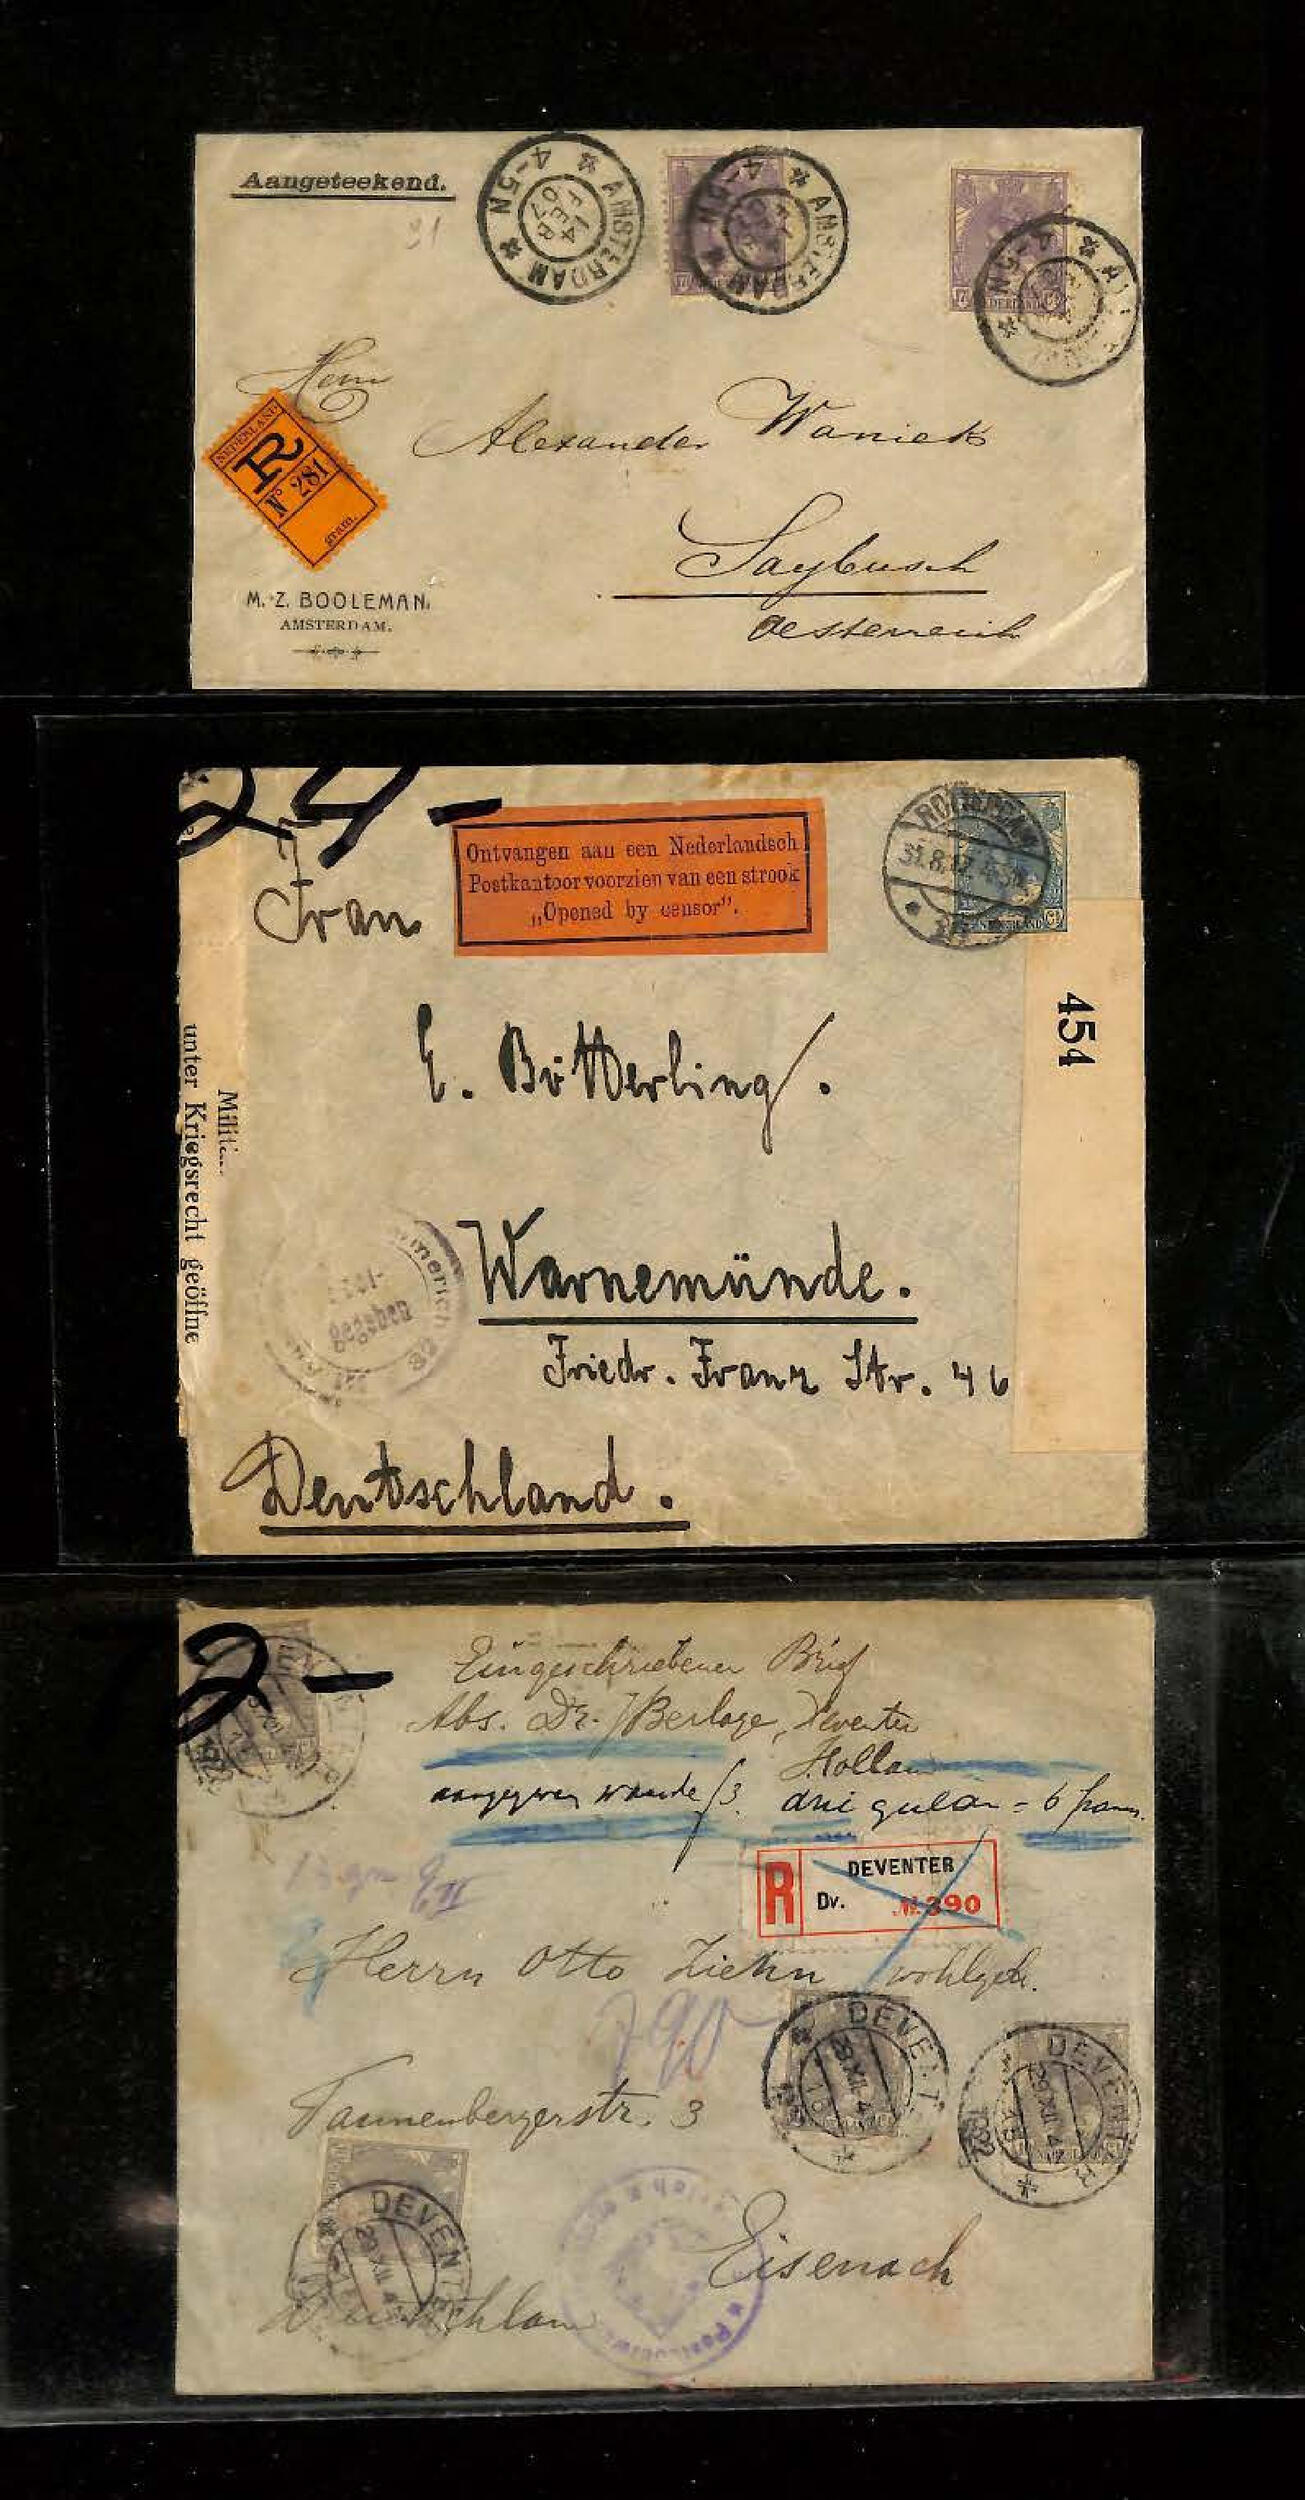 Aangeteekend.
AMSTERDAM
4-5N
14
FEB
07
AMSTERDAM
NEDERLAND
R
N° 281
gram.
Alexander Waniek
Saybusch
Oesterreich
M. Z. BOOLEMAN.
AMSTERDAM.
24-
Ontvangen aan een Nederlandsch
Postkantoor voorzien van een strook
„Opened by censor".
ROTTERDAM
31.8.17. 4-5N
454
Frau
E. Bötterling.
Warnemünde.
Friedr. Franz Str. 46
Deutschland.
unter Kriegsrecht geöffne
gegeben
2-
Eingeschriebener Brief
Abs. Dr. J Berlage, Deventer
Holland
aangegeven waarde f3. drie gulden = 6 francs.
R
DEVENTER
Dv. № 390
Herrn Otto Ziehn
790
Tannenbergerstr. 3
Eisenach
Deutschland
DEVENTER
29.XII.4
1922
DEVENTER
29.XII.4
1922
DEVENTER
29.XII.4